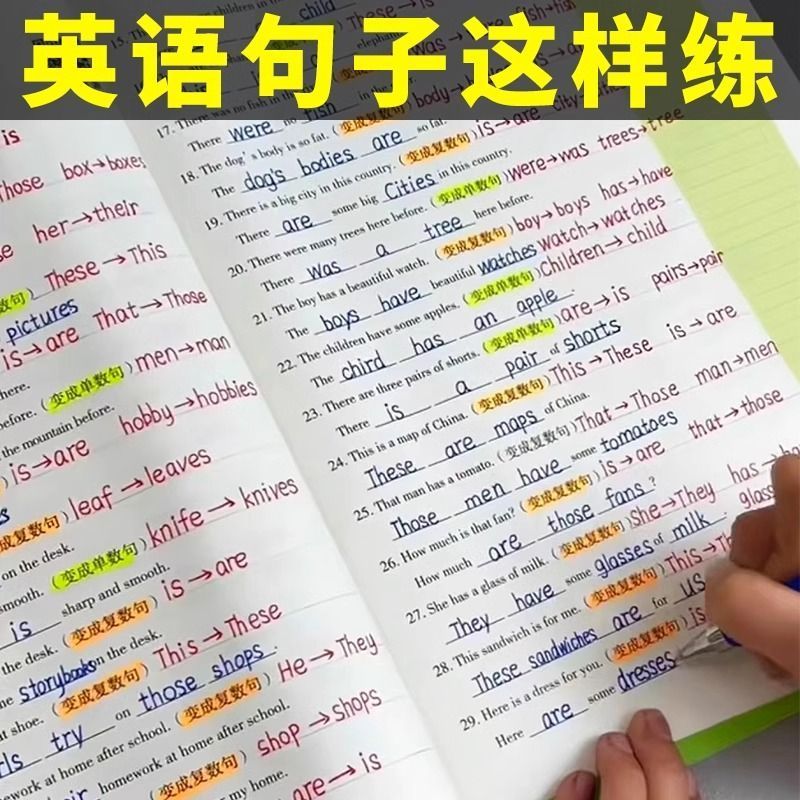 英语句子这样练
is
Those box→boxes
her→their
These→This
数句)
pictures
is→are That→Those
here.
before. (变成单数句) men→man
the mountain before.
is→are hobby→hobbies
变成复数句) leaf→leaves
on the desk.
(变成单数句) knife→knives
smooth.
is sharp and smooth.
the desk. (变成复数句) is→are
storybooks on the desk.
at shoe. (变成复数句) This→These
try on those shops.
homework at home after school. (变成复数句) He→They
homework at home after school.
(变成复数句) shop→shops
my home.
are→is
child
These→is
was→are fish→fish
17. There was no fish in the
There were no fish in the
18. The dog's body is so fat. (变成复数句) body→
The dog's bodies are so fat.
19. There is a big city in this country. (变成复数句) is→are city→
There are some big Cities in this country.
20. There were many trees here before. (变成单数句) were→was trees→tree
There was a tree here before.
21. The boy has a beautiful watch. (变成复数句) boy→boys has→have
watch→watches
The boys have beautiful watches
22. The children have some apples. (变成单数句) Children→child
The chird has an apple.
23. There are three pairs of shorts. (变成单数句) are→is pairs→pair
There is a pair of shorts
24. This is a map of China. (变成复数句) This→These is→are
These are maps of China.
25. That man has a tomato. (变成复数句) That→Those man→men
Those men have some tomatoes
26. How much is that fan? (变成复数句) is→are that→those
How much are those fans?
27. She has a glass of milk. (变成复数句) She→They has→
They have some glasses of milk.
28. This sandwich is for me. (变成复数句) This→
These sandwiches are for us
29. Here is a dress for you. (变成复数句) is
Here are some dresses